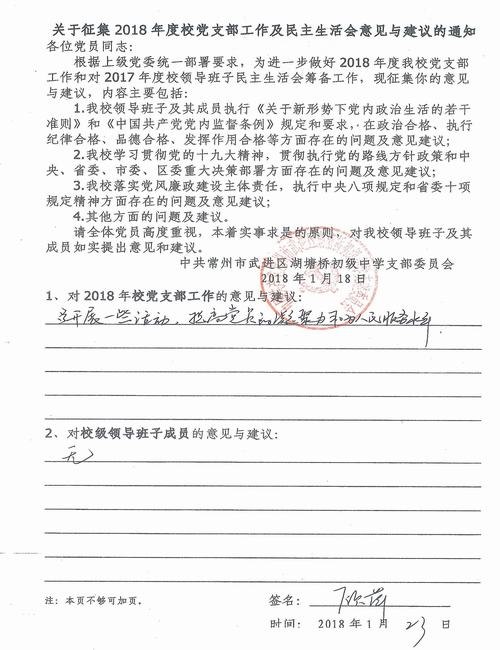 关于征集 2018 年度校党支部工作及民主生活会意见与建议的通知
各位党员同志:
根据上级党委统一部署要求，为进一步做好 2018 年度我校党支部
工作和对 2017 年度校领导班子民主生活会筹备工作，现征集你的意见
与建议，内容主要包括:
1.我校领导班子及其成员执行《关于新形势下党内政治生活的若干
准则》和《中国共产党党内监督条例》规定和要求,在政治合格、执行
纪律合格、品德合格、发挥作用合格等方面存在的问题及意见建议;
2.我校学习贯彻党的十九大精神，贯彻执行党的路线方针政策和中
央、省委、市委、区委重大决策部署方面存在的问题及意见建议;
3.我校落实党风廉政建设主体责任，执行中央八项规定和省委十项
规定精神方面存在的问题及意见建议;
4.其他方面的问题及建议。
请全体党员高度重视，本着实事求是的原则，对我校领导班子及其
成员如实提出意见和建议。
中共常州市武进区湖塘桥初级中学支部委员会
2018 年 1 月 18 日
1、对 2018 年校党支部工作的意见与建议:
开展一些活动，提高党员的凝聚力和为人民服务水平
2、对校级领导班子成员的意见与建议:
无
注: 本页不够可加页。
签名:
时间: 2018 年 1 月 23 日